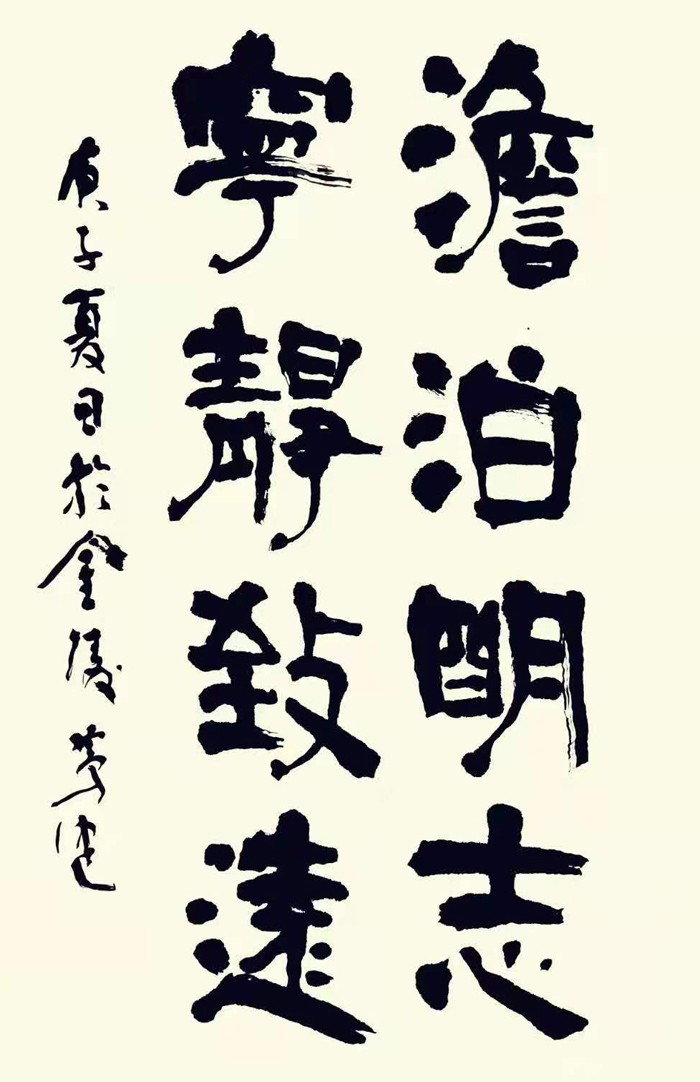 澹泊明志
寧靜致遠
庚子夏日於金陵